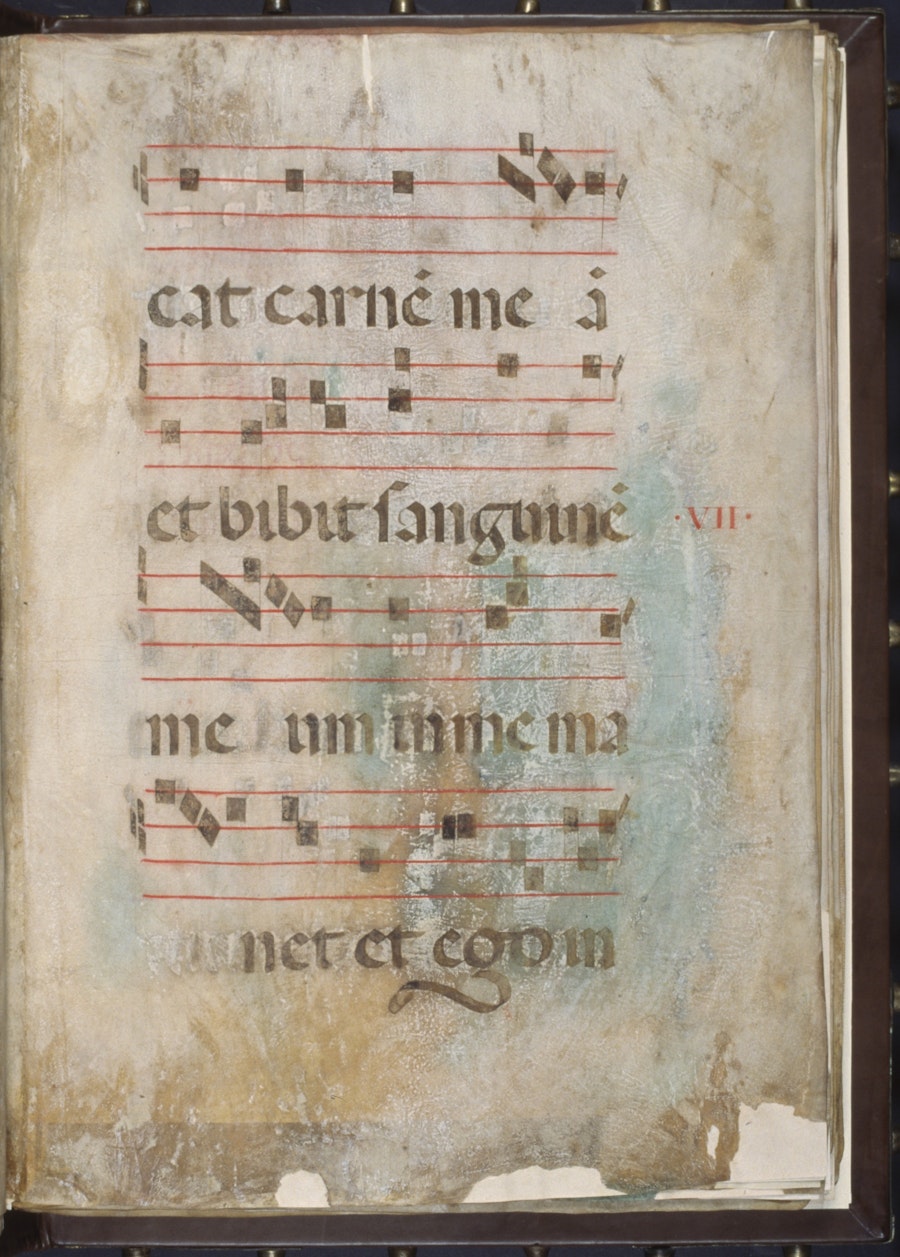 cat carnē me ā
et bibit ſanguinē
·VII·
me um in me ma
net et ego in